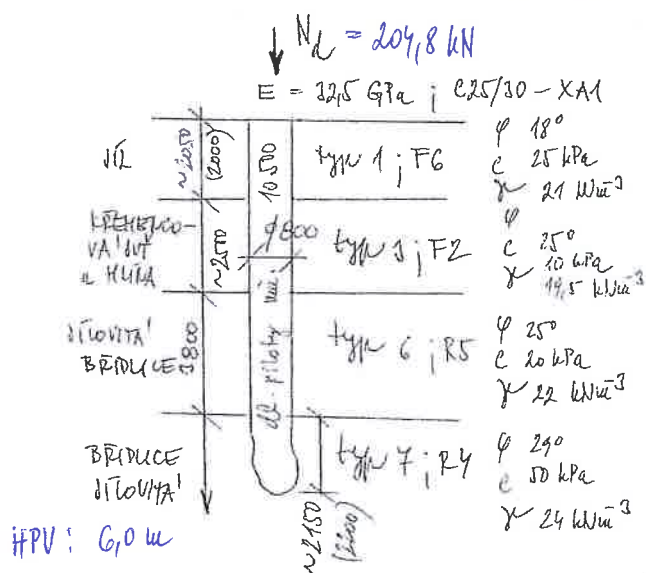 N_d = 204,8 kN
E = 32,5 GPa ; C25/30 – XA1
JÍL
~2050
(2000)
10 500
typ 1 ; F6
φ 18°
c 25 kPa
γ 21 kNm⁻³
KŘEMENCO-
VÁ SUŤ
a HLÍNA
~2500
∮800
typ 3 ; F2
φ
c 25°
γ 10 kPa
19,5 kNm⁻³
JÍLOVITÁ
BŘIDLICE
3800
dl. piloty min.
typ 6 ; R5
φ 25°
c 20 kPa
γ 22 kNm⁻³
BŘIDLICE
JÍLOVITÁ
~2150
typ 7 ; R4
φ 29°
c 50 kPa
γ 24 kNm⁻³
HPV : 6,0 m